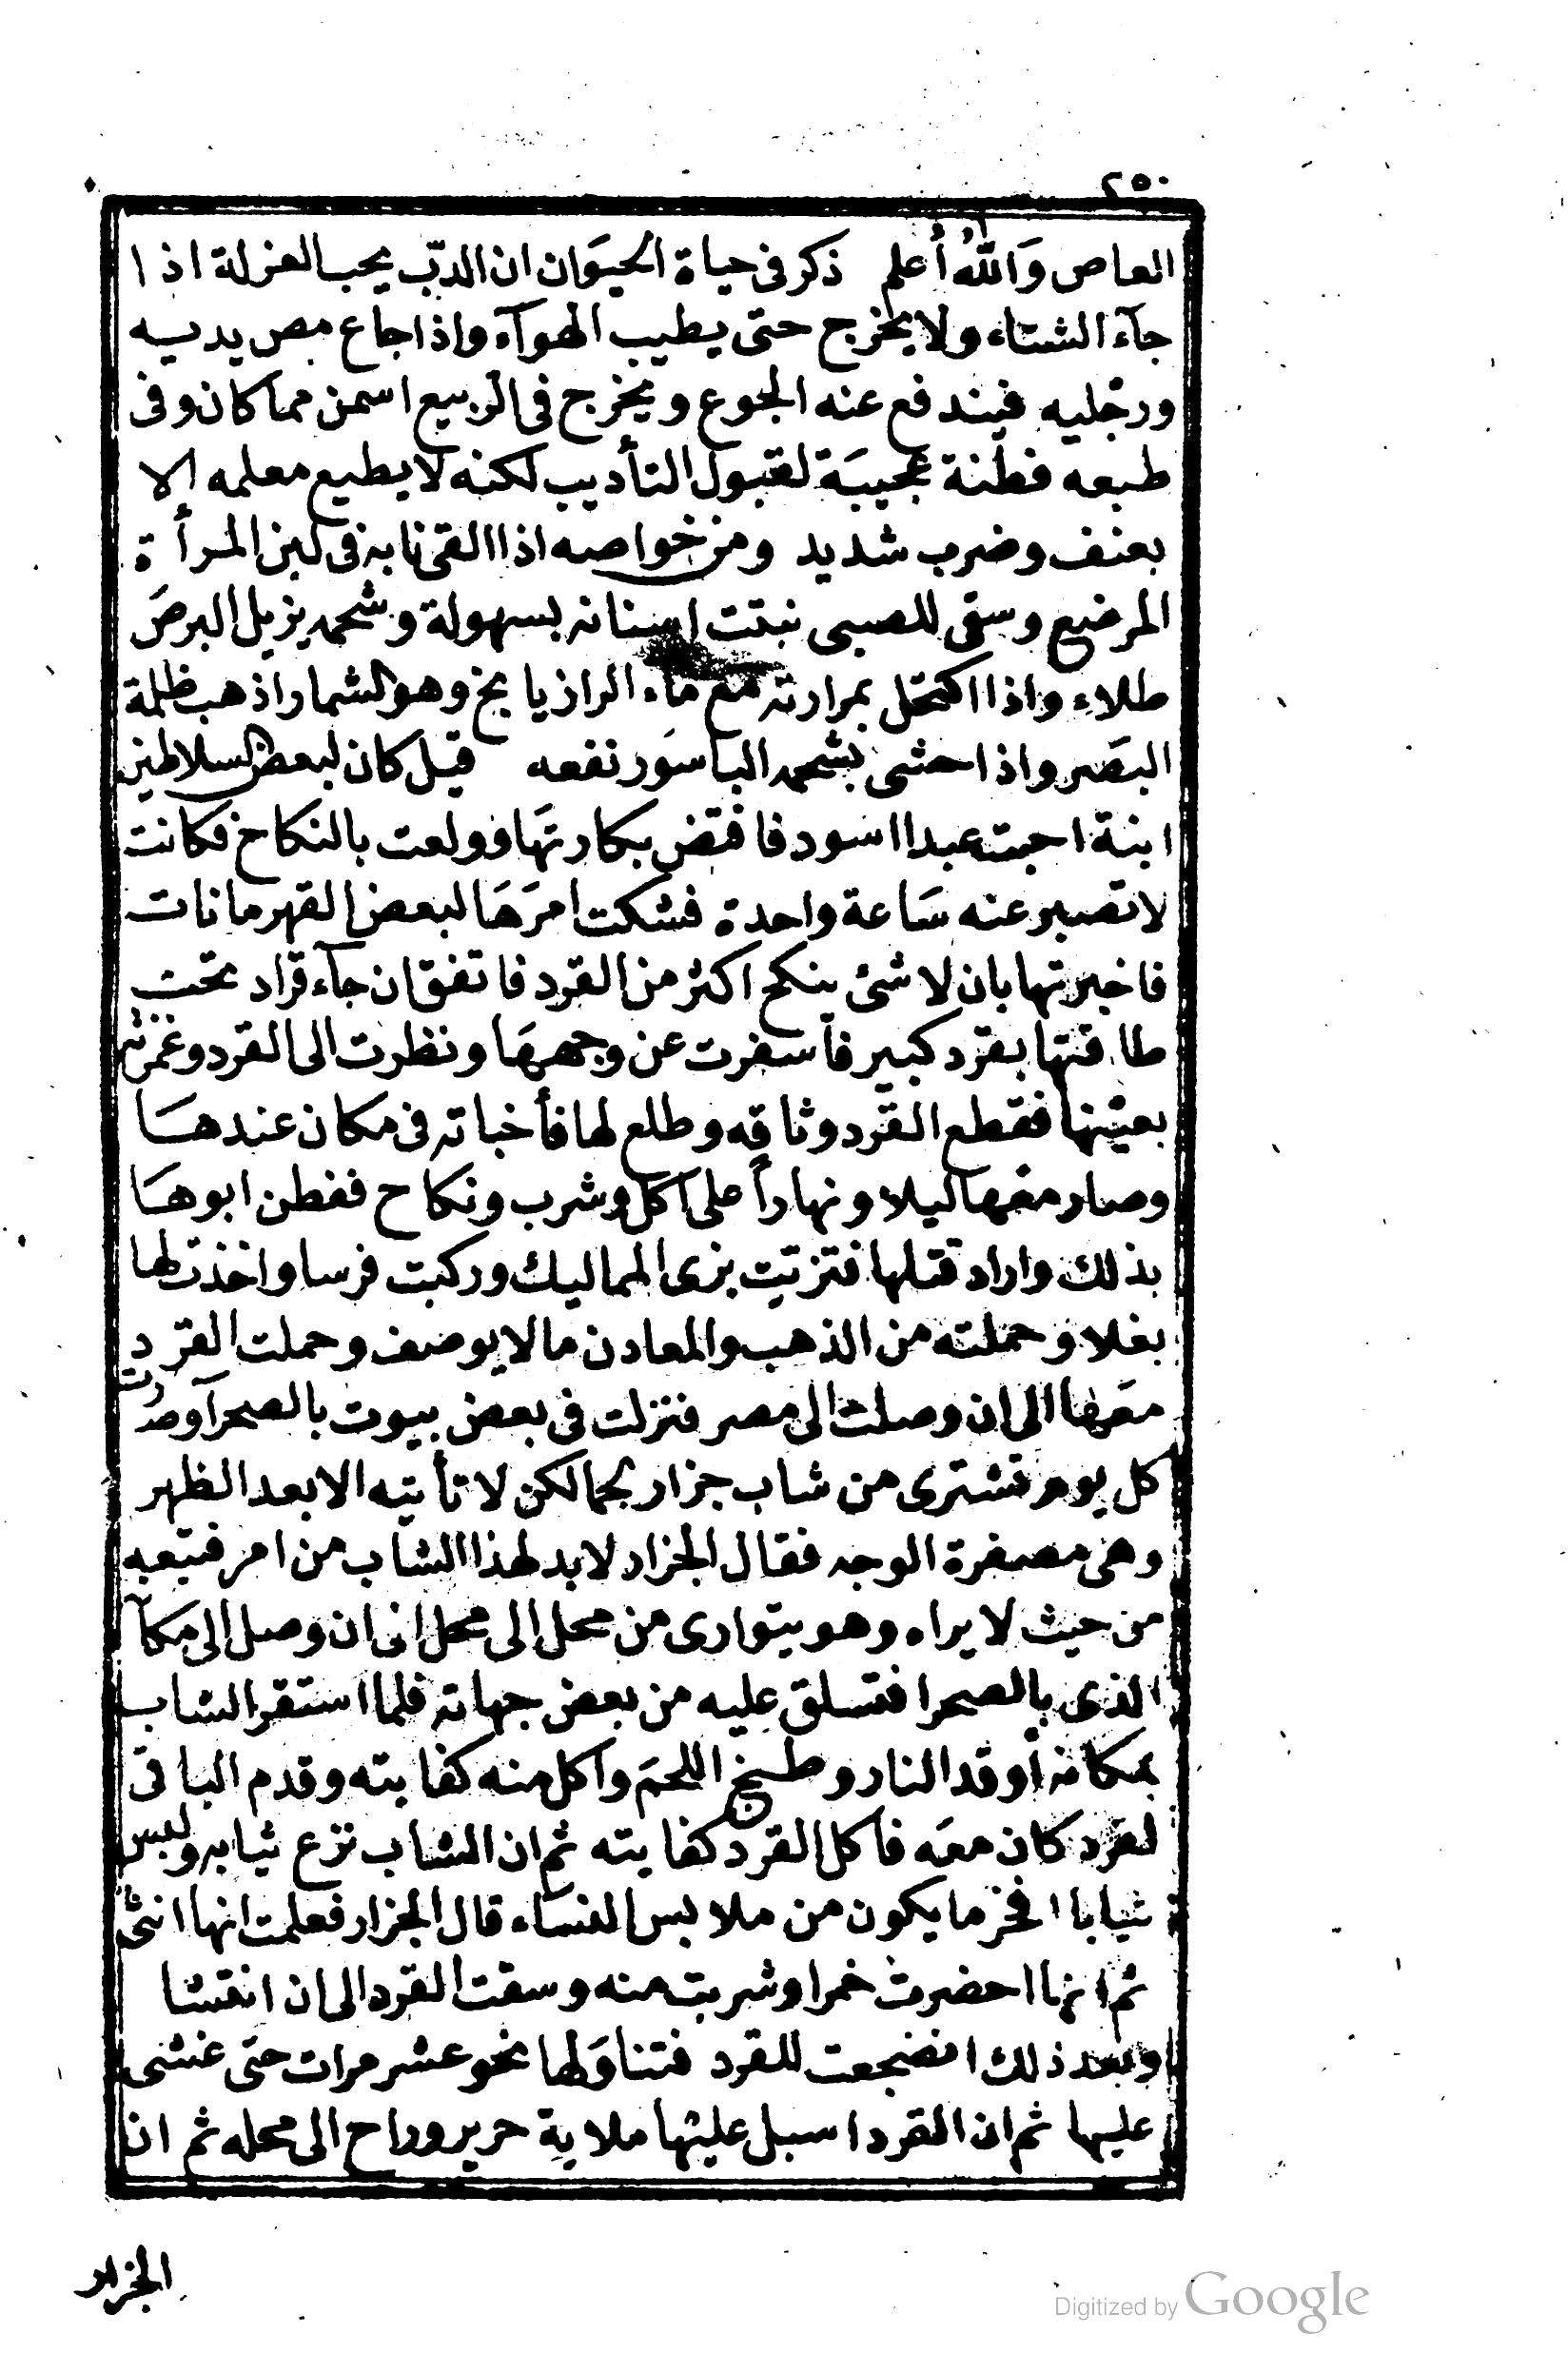 ٢٥٠
العاص وَاللّهُ أعلم ذكر فى حياة الحيوَان ان الدبّ يحب العزلة اذا
جآء الشتاء ولا يخرج حتى يطيب الهوآء واذا جاع مص يديه
ورجليه فيندفع عنه الجوع ويخرج فى الربيع اسمن مما كان وفى
طبعه فطنة عجيبَة لقبول التأديب لكنه لا يطيع معلمه الا
بعنف وضرب شديد ومن خواصه اذا القى نابه فى لبن المرأة
المرضع وسقى للصبى نبتت اسنانه بسهولة وشحمه يزيل البرصَ
طلاء واذا اكتحل بمرارته مع ماء الرازيانج وهو الشمار اذهب ظلمة
البصَر واذا حشى بشحمه الباسَور نفعه قيل كان لبعض السلاطين
ابنة احبت عبدا اسود فافتض بكارتهَا وولعت بالنكاح فكانت
لا تصبر عنه سَاعة واحدة فشكت امرَهَا لبعض القهرمانات
فاخبرتها بان لا شئ ينكح اكثر من القرد فاتفق ان جآء قراد تحت
طاقتها بقرد كبير فاسفرت عن وجههَا ونظرت الى القرد وغمزته
بعينها فقطع القرد وثاقه وطلع لها فأخباته فى مكان عندهَا
وصار معَها ليلا ونهاراً على اكل وشرب ونكاح ففطن ابوهَا
بذلك واراد قتلها فتزيّت بزى المماليك وركبت فرسا واخذت لها
بغلا وحملته من الذهب والمعادن ما لا يوصف وحملت القرد
معَها الى ان وصلت الى مصر فنزلت فى بعض بيوت بالصحرآ وصارت
كل يوم تشترى من شاب جزار لحما لكن لا تأتيه الا بعد الظهر
وهى مصفرة الوجه فقال الجزار لا بد لهذا الشاب من امر فتبعه
من حيث لا يراه وهو يتوارى من محل الى محل الى ان وصل الى مكآ
الذى بالصحرا فتسلق عليه من بعض جهاته فلما استقر الشاب
بمكانه أوقد النار وطبخ اللحمَ واكل منه كفايته وقدم الباقى
لقرد كان معَه فاكل القرد كفايته ثم ان الشاب نزع ثيابه ولبس
ثيابا افخر ما يكون من ملابس النساء قال الجزار فعلمت انها انثى
ثم انها احضرت خمرا وشربت منه وسقت القرد الى ان انتشا
وبعد ذلك اضضجعت للقرد فتناوَلها نحو عشر مرات حتى غشى
عليها ثم ان القرد اسبل عليها ملاية حرير وراح الى محله ثم ان
الجزار
Digitized by Google